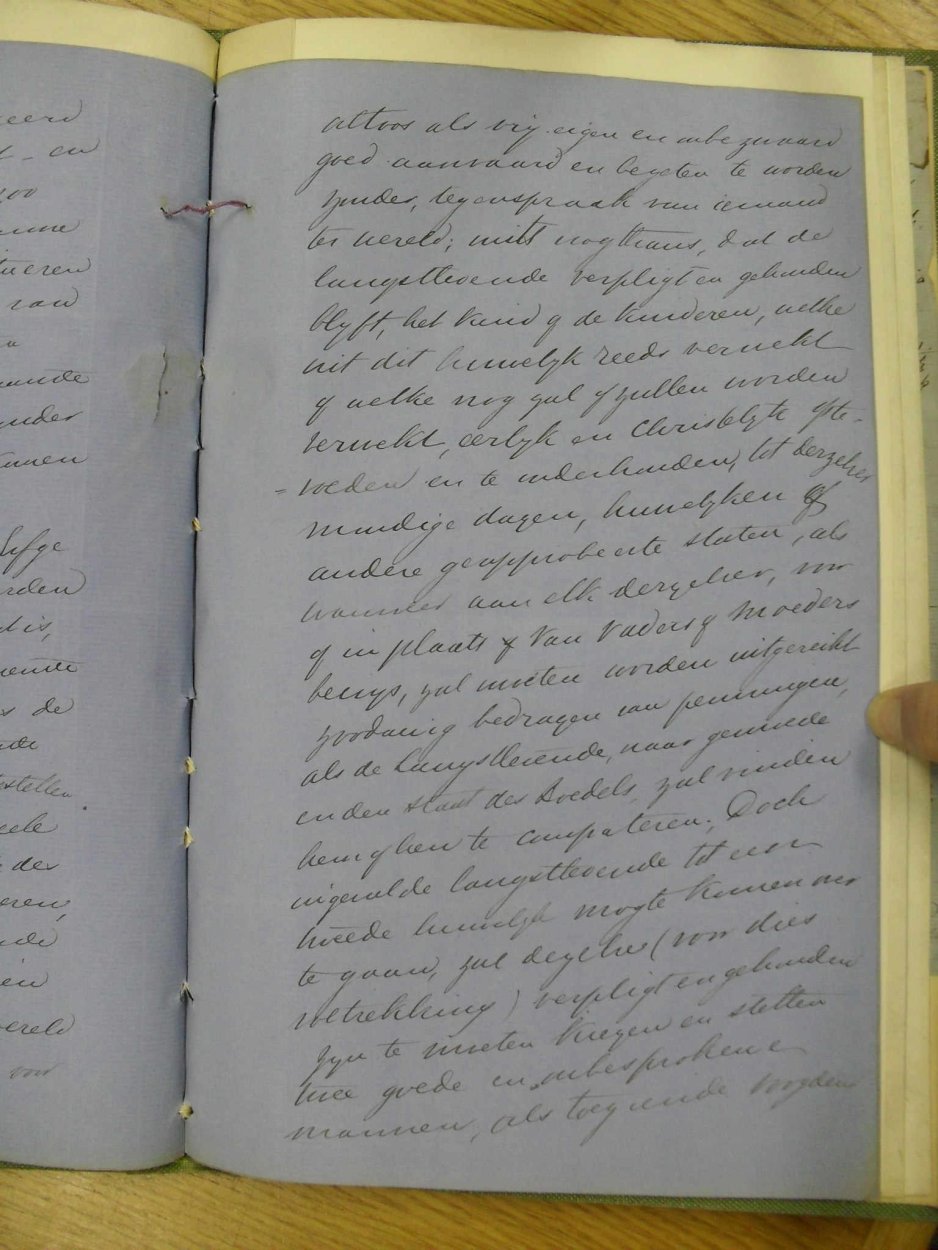 eerd
en
van
ueren
aande
onder
unnen
rden
dis,
de
stellen
der
eren,
wereld
voor
altoos als vry eigen en onbezwaard
goed aanvaard en bezeten te worden
zonder, tegenspraak van iemand
ter wereld; mits nogthans, dat de
langstlevende verpligt en gehouden
blyft, het kind of de kinderen, welke
uit dit huwelyk reeds verwekt
of welke nog zal of zullen worden
verwekt, eerlyk en Christelyk opte-
=voeden en te onderhouden, tot derzelver
mundige dagen, huwelyken of
andere geapprobeerte staten, als
wanneer aan elk derzelver, voor
of in plaats van Vaders of Moeders
bewys, zal moeten worden uitgereikt
zoodanig bedragen van penningen,
als de Langstlevende, naar gemoede
en den staat des Boedels, zal vinden
hem of hen te computeren; Doch
ingevalde langstlevende tot een
tweede huwelyk mogte komen over
te gaan, zal dezelve (voor dies
voltrekking) verpligt en gehouden
zyn te moeten kiezen en stellen
twee goede en onbesprokene
mannen, als toeziende voogden